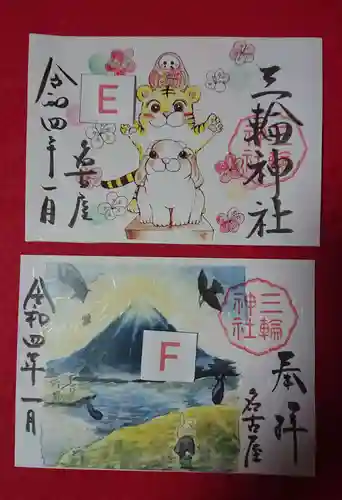 三輪神社
名古屋
令和四年一月
E
三輪
神社
奉拝
名古屋
令和四年一月
F